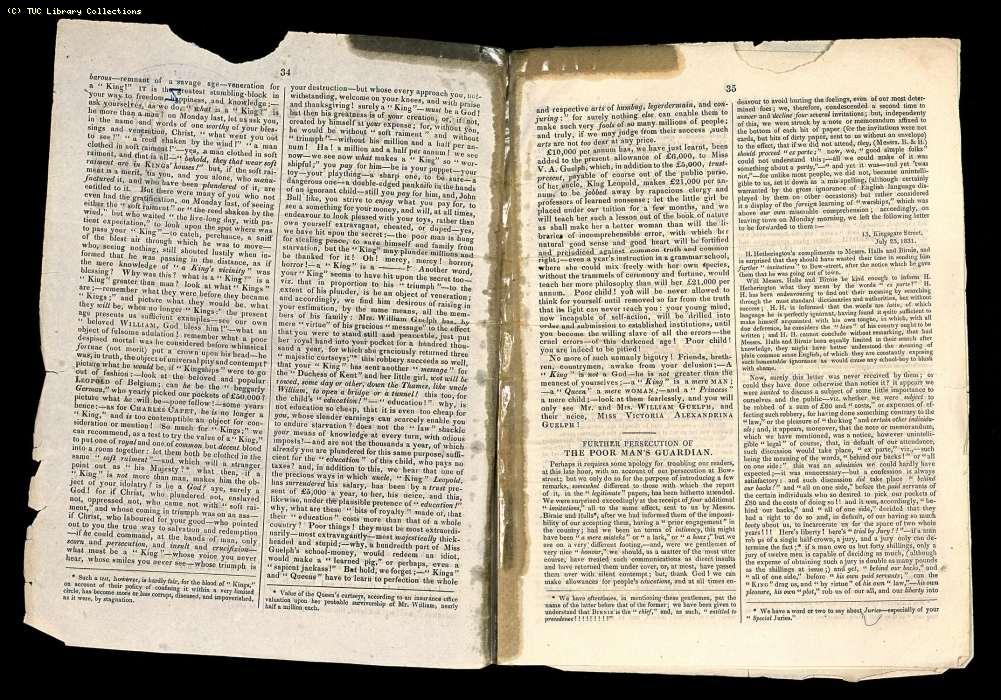 (C) TUC Library Collections
34
barous—remnant of a savage age—veneration for
a "King!" IT is the greatest stumbling-block in
your way to freedom, happiness, and knowledge;—
ask yourselves, as we do, "what is a "King?" is
he more than a man? on Monday last, let us ask you,
in the name and words of one worthy of your bles-
sings and veneration, Christ, "what went you out
to see?"—"a reed shaken by the wind?"—"a man
clothed in soft raiment?"—yes, a man clothed in soft
raiment, and that in all—"behold, they that wear soft
raiment are in KINGS' houses;" but, if the soft rai-
ment is a merit, 'tis you, and you alone, who manu-
factured it, and who have been plundered of it, are
entitled to it. But there were many of you who not
even had the gratification, on Monday last, of seeing
either the "soft raiment" or "the reed shaken by the
wind," but who waited "the live-long day, with pa-
tient expectation," to look upon the spot where was
to pass your "King"—to catch, perchance, a sniff
of the blest air through which he was to move—
who, seeing nothing, still shouted lustily when in-
formed that he was passing in the distance, as if
the mere knowledge of "a King's vicinity" was
blessing! Why was this? what is a "King?" is a
"King" greater than man? look at what "Kings"
are;—remember what they were before they became
"Kings;" and picture what they would be, what
they will be, when no longer "Kings:" the present
age presents us sufficient examples—see our own
"beloved WILLIAM, God bless him!"—what an
object of fulsome adulation! remember what a poor
despised mortal he was considered before whimsical
fortune (not merit) put a crown upon his head—he
was, in truth, the object of universal pity and contempt!
picture what he would be, if "Kingships" were to go
out of fashion!—look at the beloved and popular
LEOPOLD of Belgium; can he be the "beggarly
German," who yearly picked our pockets of £50,000?
picture what he will be—poor fellow!—some years
hence:—as for CHARLES CAPET, he is no longer a
"King," and is too contemptible an object for con-
sideration or mention! So much for "Kings;" we
can recommend, as a test to try the value of a "King,"
to put one of royal and one of common but decent blood
into a room together: let them both be clothed in the
same "soft raiment"—and which will a stranger
point out as "his Majesty?" what then, if a
"King" is not more than man, makes him the ob-
ject of your idolatry? is he a God? are, surely a
God! for if Christ, who plundered not, enslaved
not, oppressed not, who came not with "soft rai-
ment," and whose coming in triumph was on an ass—
if Christ, who laboured for your good—who pointed
out to you the true way to salvation and redemption
—if he could command, at the hands of man, only
scorn and persecution, and insult and crucifixion—
what must be a "King"—whose voice you never
hear, whose smiles you never see—whose triumph is
* Such a test, however, is hardly fair, for the blood of "Kings,"
on account of their policy of confining it within a very limited
circle, has become more or less corrupt, diseased, and impoverished,
as it were, by stagnation.
your destruction—but whose every approach you, not-
withstanding, welcome on your knees, and with praise
and thanksgiving! surely a "King"—must be a God!
but then his greatness is of your creation, or, if not,
created by himself at your expense; for, without you,
he would be without "soft raiment" and without
"triumph"—without his million and a half per an-
num! Ha! a million and a half per annum! we see
now—we see now what makes a "King" so "wor-
shipful;" you pay for him—he is your puppet—your
toy—your plaything—a sharp one, to be sure—a
dangerous one—a double-edged penknife in the hands
of an ignorant child—still you pay for him, and, John
Bull like, you strive to enjoy what you pay for, to
see a something for your money, and will, at all times,
endeavour to look pleased with your toys, rather than
own yourself extravagant, cheated, or duped—yes,
we have hit upon the secret:—the poor man is hung
for stealing pence, to save himself and family from
starvation, but the "King" may plunder millions and
be thanked for it! Oh! mercy, mercy! horror,
horror!—a "King" is a Another word,
your "King" seems to have hit upon the secret too—
viz. that in proportion to his "triumph"—to the
extent of his plunder, is he an object of veneration;
and accordingly, we find him desirous of raising in
your estimation, by the same means, all the mem-
bers of his family: Mrs. William Guelph has, by
mere "virtue" of his gracious "message" to the effect
that you were to stand still and peaceable, just put
her royal hand into your pocket for a hundred thou-
sand a year, for which she graciously returned three
"majestic curtseys;"* this robbery succeeds so well,
that your "King" has sent another "message" for
the "Duchess of Kent" and her little girl, not until he
roused, some day or other, down the Thames, like uncle
William, to open a bridge or a tunnel! this too, for
the child's "education!"—"education!!" why, is
not education so cheap, that it is even too cheap for
you, whose slender earnings can scarcely enable you
to endure starvation? does not the "law" shackle
your means of knowledge at every turn, with odious
imposts!—and are not the thousands a year, of which
already you are plundered for this same purpose, suffi-
cient for the "education" of this child, who pays no
taxes? and, in addition to this, we hear that one of
the precious ways in which uncle, "King" Leopold,
has surrendered his salary, has been by a trust pre-
sent of £5,000 a year, to her, his neice, and this,
likewise, under the plausible pretence of "education!"
why, what are these "bits of royalty" made of, that
their "education" costs more than that of a whole
country? Poor things! they must be most extraordi-
narily—most extravagantly—most majestically thick-
headed and stupid;—why, a hundredth part of Miss
Guelph's school-money, would redeem an idiot,
would make a "learned pig," or perhaps, even a
"sapient jackass!" But hold, we forget;—"Kings"
and "Queens" have to learn to perfection the whole
* Value of the Queen's curtseys, according to an insurance office
valuation upon her probable survivorship of Mr. William, nearly
half a million each.
35
and respective arts of humbug, legerdermain, and con-
juring: for surely nothing else can enable them to
make such very fools of so many millions of people;
and truly, if we may judge from their success, such
arts are not too dear at any price.
£10,000 per annum has, we have just learnt, been
added to the present allowance of £6,000, to Miss
V. A. Guelph, which, in addition to the £5,000, trust-
present, payable of course out of the public purse,
of her uncle, King Leopold, makes £21,000 per an-
num! to be jobbed away by rapacious clergy and
professors of learned nonsense; let the little girl be
placed under our tuition for a few months, and we
will teach her such a lesson out of the book of nature
as shall make her a better woman than will the li-
braries of incomprehensible error, with which her
natural good sense and good heart will be fortified
and prejudiced against common truth and common
right;—even a year's instruction in a grammar school,
where she could mix freely with her own species,
without the trammels of ceremony and fortune, would
teach her more philosophy than will her £21,000 per
annum. Poor child! you will be never allowed to
think for yourself until removed so far from the truth
that its light can never reach you: your young mind,
now incapable of self-action, will be drilled into
order and submission to established institutions, until
you become the willing slave of all the errors—the
cruel errors—of this darkened age! Poor child!
you are indeed to be pitied!
No more of such unmanly bigotry! Friends, breth-
ren, countrymen, awake from your delusion;—A
"King" is not a God—he is not greater than the
meanest of yourselves;—a "King" is a mere MAN;
—a "Queen" a mere WOMAN;—and a "Princess"
a mere child;—look at them fearlessly, and you will
only see Mr. and Mrs. WILLIAM GUELPH, and
their neice, MISS VICTORIA ALEXANDRINA
GUELPH!
FURTHER PERSECUTION OF
THE POOR MAN'S GUARDIAN.
Perhaps it requires some apology for troubling our readers,
at this late hour, with an account of our persecution at Bow-
street; but we only do so for the purpose of introducing a few
remarks, somewhat different from those with which the report
of it, in the "legitimate" papers, has been hitherto attended.
We were surprised accordingly at the receipt of four additional
"invitations," all to the same effect, sent to us by Messrs.
Birnie and Halls*, after we had informed them of the impossi-
bility of our accepting them, having a "prior engagement" in
the country: had we been on terms of intimacy, this might
have been "a mere mistake" or "a lark," or "a hoax;" but we
are on a very different footing,—and, were we gentlemen of
very nice "honour," we should, as a matter of the most utter
course, have treated such communications as direct insults
and have returned them under cover, or, at most, have passed
them over with silent contempt; but, thank God! we can
make allowances for people's educations, and at all times en-
* We have oftentimes, in mentioning these gentlemen, put the
name of the latter before that of the former; we have been given to
understand that BIRNIE is the "chief," and, as such, "entitled to
precedence!!!!!!!!!"
deavour to avoid hurting the feelings, even of our most deter-
mined foes; we, therefore, condescended a second time to
answer and decline four several invitations; but, independently
of this, we were struck by a note or memorandum affixed to
the bottom of each bit of paper (for the invitations were not
cards, but bits of dirty paper, sent to us without an envelope)
to the effect, that if we did not attend, they, (Messrs. H. & B.)
should proceed "ex parte;" now, we, "good simple folks"
could not understand this;—all we could make of it was
something about a party,"—and yet it was—and yet "'twas
not,"—for unlike most people, we did not, because unintelli-
gible to us, set it down as a mis-spelling, (although certainly
warranted by the gross ignorance of English language dis-
played by them on other occasions) but rather considered
it a display of the foreign learning of "worships," which was
above our own miserable comprehension: accordingly, on
leaving town on Monday morning, we left the following letter
to be forwarded to them:—
13, Kingsgate Street,
July 25, 1831.
H. Hetherington's compliments to Messrs. Halls and Birnie, and
is surprised that they should have wasted their time in sending him
further "invitations" to Bow-street, after the notice which he gave
them that he was going out of town.
Will Messrs. Halls and Birnie be kind enough to inform H.
Hetherington what they mean by the words "ex parte?" H.
H. has been endeavouring to find out their meaning by searching
through the most standard dictionaries and authorities, but without
success; H. H. is informed that the words are latin; of which
language he is perfectly ignorant, having found it quite sufficient to
make himself acquainted with his own tongue, in which, with all
due deference, he considers the "laws" of his country ought to be
written; and H. H. cannot conclude without remarking, that had
Messrs. Halls and Birnie been equally limited in their search after
knowledge, they might have better understood the meaning of
plain common sense English, of which they are constantly exposing
such lamentable ignorance as would cause any school-boy to blush
with shame.
Now, surely this letter was never received by them; or
could they have done otherwise than notice it? it appears we
were invited to discuss a subject of some little importance to
ourselves and the public—viz. whether we were subject to
be robbed of a sum of £80 and "costs," or expences of ef-
fecting such robbery, for having done something contrary to the
"law," or the pleasure of "the king" and certain other individu-
als; and, it appears, moreover, that the note or memorandum,
which we have mentioned, was a notice, however unintelli-
gible "legal" of course, that, in default of our attendance,
such discussion would take place, "ex parte," viz.,—such
being the meaning of the words, "behind our backs!" or "all
on one side:" this was an admission we could hardly have
expected;—it was unnecessary—but a confession is always
satisfactory: and such discussion did take place "behind
our backs" and "all on one side," before the paid servants of
the certain individuals who so desired to pick our pockets of
£80 and the costs of doing so!! and it was, accordingly, "be-
hind our backs," and "all of one side," decided that they
had a right to do so and, in default, of our having so much
booty about us, to incarcerate us for the space of two whole
years!!! Here's liberty! here's "trial by Jury!!"—if a man
rob ps of a single half crown, a jury, and a jury only can de-
termine the fact;* if a man owes us but forty shillings, only a
jury of twelve men is capable of deciding as much, (although
the expense of obtaining such a jury is double as many pounds
as the shillings at issue) and yet, "behind our backs," and
"all of one side," before "his own paid servants," can the
"KING" drag us, and "by virtue" of his own "law,"—his own
pleasure, his own "plot," rob us of our all, and our liberty into
* We have a word or two to say about Juries—especially of your
"Special Juries."